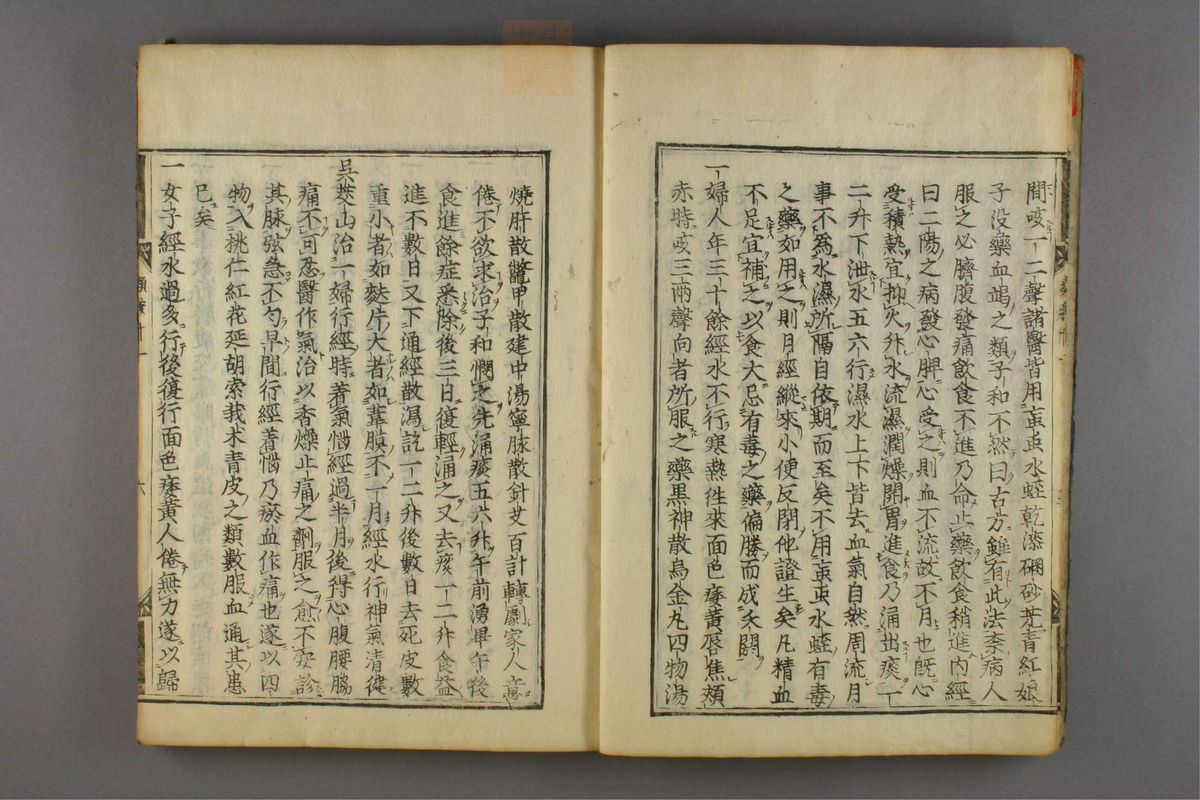 間咳一二聲諸醫皆用䖟虫水蛭乾漆硇砂芫青紅娘
子没藥血竭之類子和不然曰古方雖有此法柰病人
服之必臍腹發痛飲食不進乃命止藥飲食稍進内經
曰二陽之病發心脾心受之則血不流故不月也既心
受積熱宜抑火升水流濕潤燥開胃進食乃涌出痰一
二升下泄水五六行濕水上下皆去血氣自然周流月
事不為水濕所隔自依期而至矣不用䖟虫水蛭有毒
之藥如用之則月經縱來小便反閉他證生矣凡精血
不足宜補之以食大忌有毒之藥偏勝而成夭閼
一婦人年三十餘經水不行寒熱徃來面色痿黄唇焦頰
赤時咳三兩聲向者所服之藥黒神散烏金丸四物湯
燒肝散鱉甲散建中湯寧肺散針艾百計轉劇家人意
倦不欲求治子和憫之先涌痰五六升午前湧畢午後
食進餘症悉除後三日復輕涌之又去痰一二升食益
進不數日又下通經散瀉訖一二升後數日去死皮數
重小者如麩片大者如葦膜不一月經水行神氣清徤
吳茭山治一婦行經時着氣惱經過半月後得心腹腰脇
痛不可忍醫作氣治以香燥止痛之劑服之愈不安診
其脉弦急不匀早間行經着惱乃瘀血作痛也遂以四
物入桃仁紅花延胡索莪术青皮之類數服血通其患
已矣
一女子經水過多行後復行面色痿黄人倦無力遂以歸